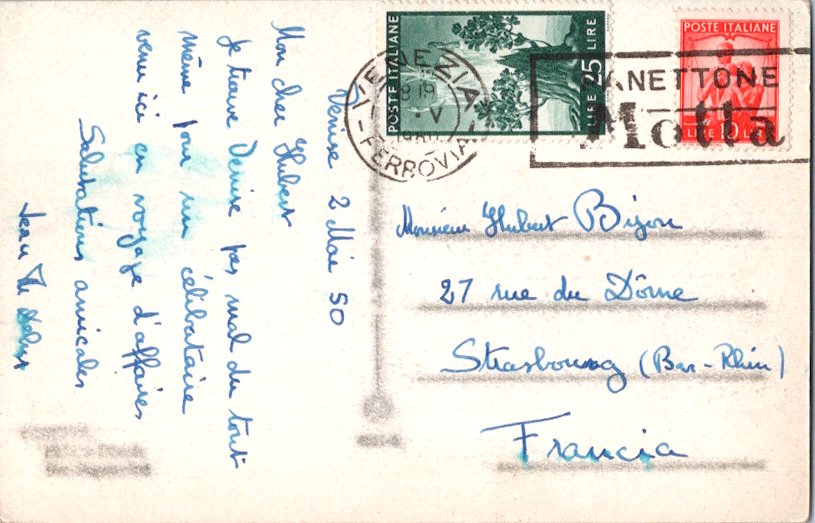 Venise 2 Mai 50
Mon cher Hubert
je trouve Venise pas mal du tout
même pour un célibataire
venu ici en voyage d'affaires
Salutations amicales
Jean
POSTE ITALIANE
LIRE 25 LIRE
POSTE ITALIANE
LIRE 10 LIRE
VENEZIA
19
V
FERROVIA
PANETTONE
Motta
Monsieur Hubert Bijon
27 rue du Dôme
Strasbourg (Bas-Rhin)
Francia